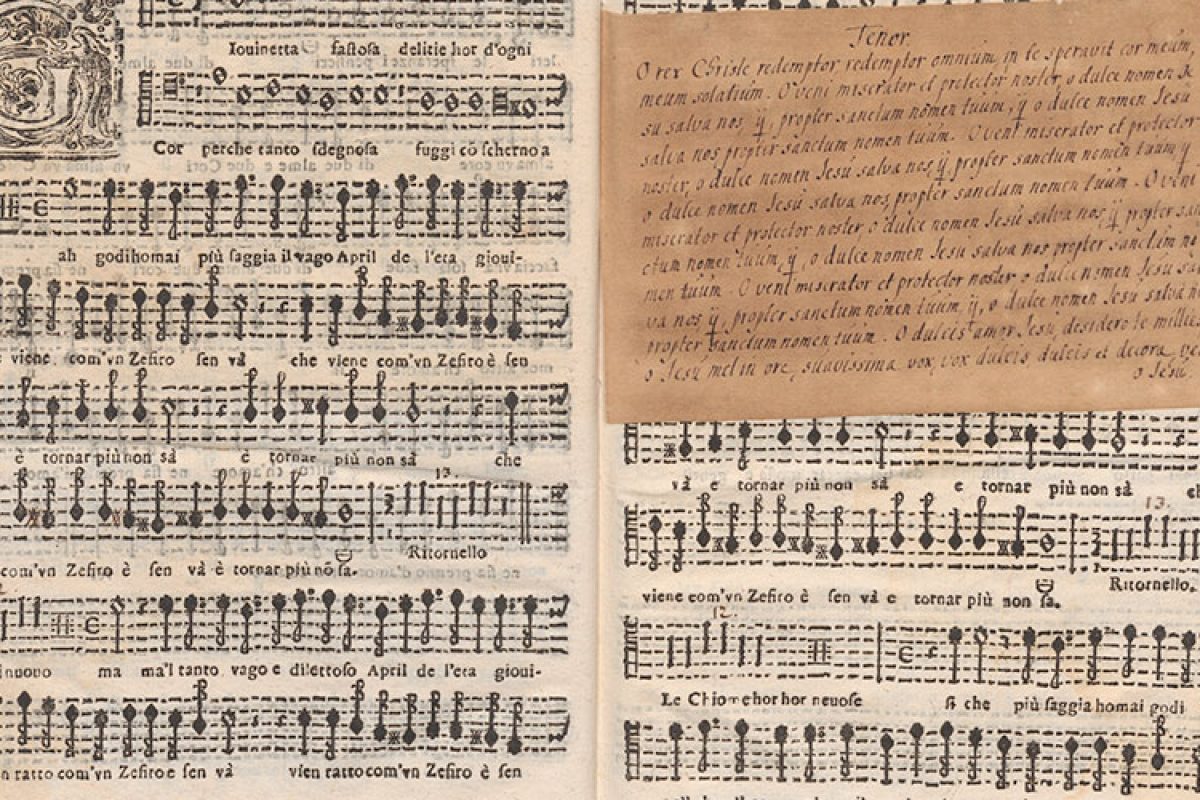 Iouinetta fastosa delitie hor d'ogni
Cor perche tanto sdegnosa fuggi cõ scherno a
ah godi homai più saggia il vago April de l'eta gioui-
viene com'vn Zefiro sen và che viene com'vn Zefiro è sen
è tornar più non sà e tornar più non sà che
13
Ritornello
com'vn Zefiro è sen và è tornar più nõ sa.
nuouo ma ma'l tanto vago e dilettoso April de l'eta gioui-
ratto com'vn Zefiro e sen và vien ratto com'vn Zefiro è sen
Tenor.
O rex Christe redemptor, redemptor omnium, in te speravit cor meum,
meum solatium. O veni miserator et protector noster, o dulce nomen Je
su salva nos, ij, propter sanctum nomen tuum, ij o dulce nomen Jesu
salva nos propter sanctum nomen tuum. O veni miserator et protector
noster, o dulce nomen Jesu salva nos, ij, propter sanctum nomen tuum ij
o dulce nomen Jesu salva nos, propter sanctum nomen tuum. O veni
miserator et protector noster o dulce nomen Jesu salva nos, ij propter san
ctum nomen tuum, ij, o dulce nomen Jesu salva nos propter sanctum no
men tuum. O veni miserator et protector noster o dulce nomen Jesu sal
va nos ij, propter sanctum nomen tuum, ij, o dulce nomen Jesu salva
propter sanctum nomen tuum. O dulcis amor Jesu, desidero te millies
o Jesu mel in ore, suavissima vox, vox dulcis, dulcis et decora, ve
o Jesu.
và e tornar più non sà e tornar più non sà
13.
Ritornello.
viene com'vn Zefiro è sen và e tornar più non sa.
12.
Le Chiome hor hor neuose si che più saggia homai godi